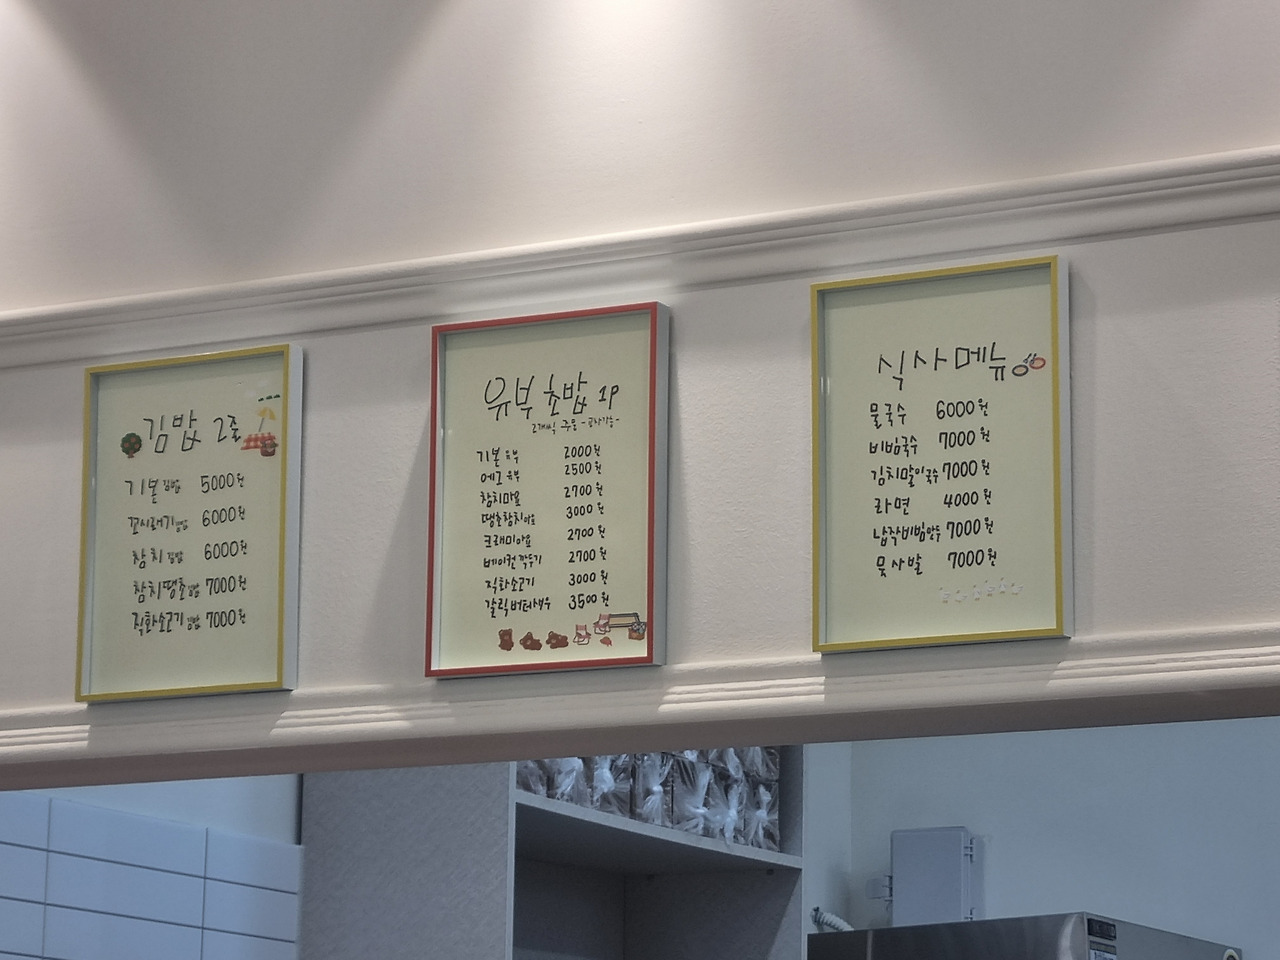 김밥 2줄
기본김밥 5000원
꼬시래기김밥 6000원
참치김밥 6000원
참치땡초김밥 7000원
직화소고기김밥 7000원
유부초밥 1P
2개씩 주문
기본유부 2000원
에그유부 2500원
참치마요 2700원
땡초참치마요 3000원
크래미마요 2700원
베이컨깍두기 2700원
직화소고기 3000원
갈릭버터새우 3500원
식사메뉴
물국수 6000원
비빔국수 7000원
김치말이국수 7000원
라면 4000원
납작비빔만두 7000원
묵사발 7000원